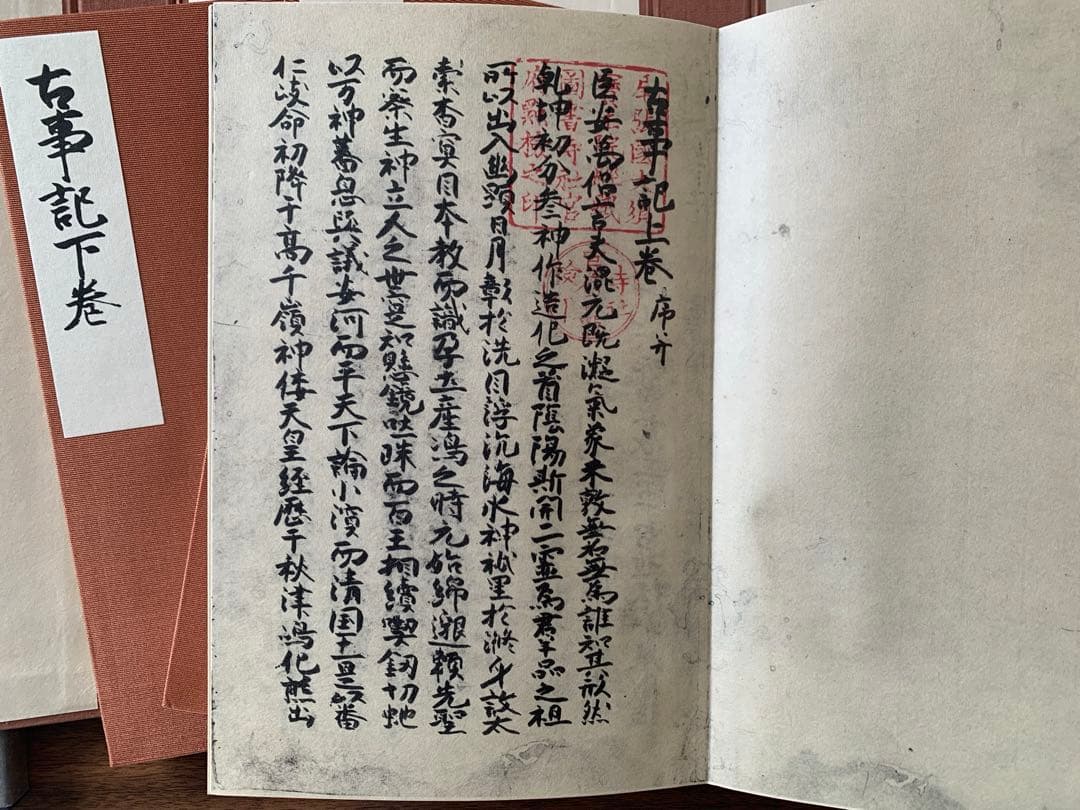 古事記下巻
古事記上巻 序并
臣安萬侶言夫混元既凝氣象未敦無名無為誰知其形然
乾坤初分参神作造化之首陰陽斯開二霊為群品之祖
所以出入幽顕日月彰於洗目浮沉海水神祇呈於滌身故太
素杳冥因本教而識孕土産嶋之時元始綿邈頼先聖
而察生神立人之世寔知懸鏡吐珠而百王相續喫釼切蛇
以万神蕃息與議安河而平天下論小濱而清国土是以番
仁岐命初降于高千嶺神倭天皇経歴于秋津嶋化熊出
尾張國大須
寶生院經藏
圖書寺社官
府點檢之印